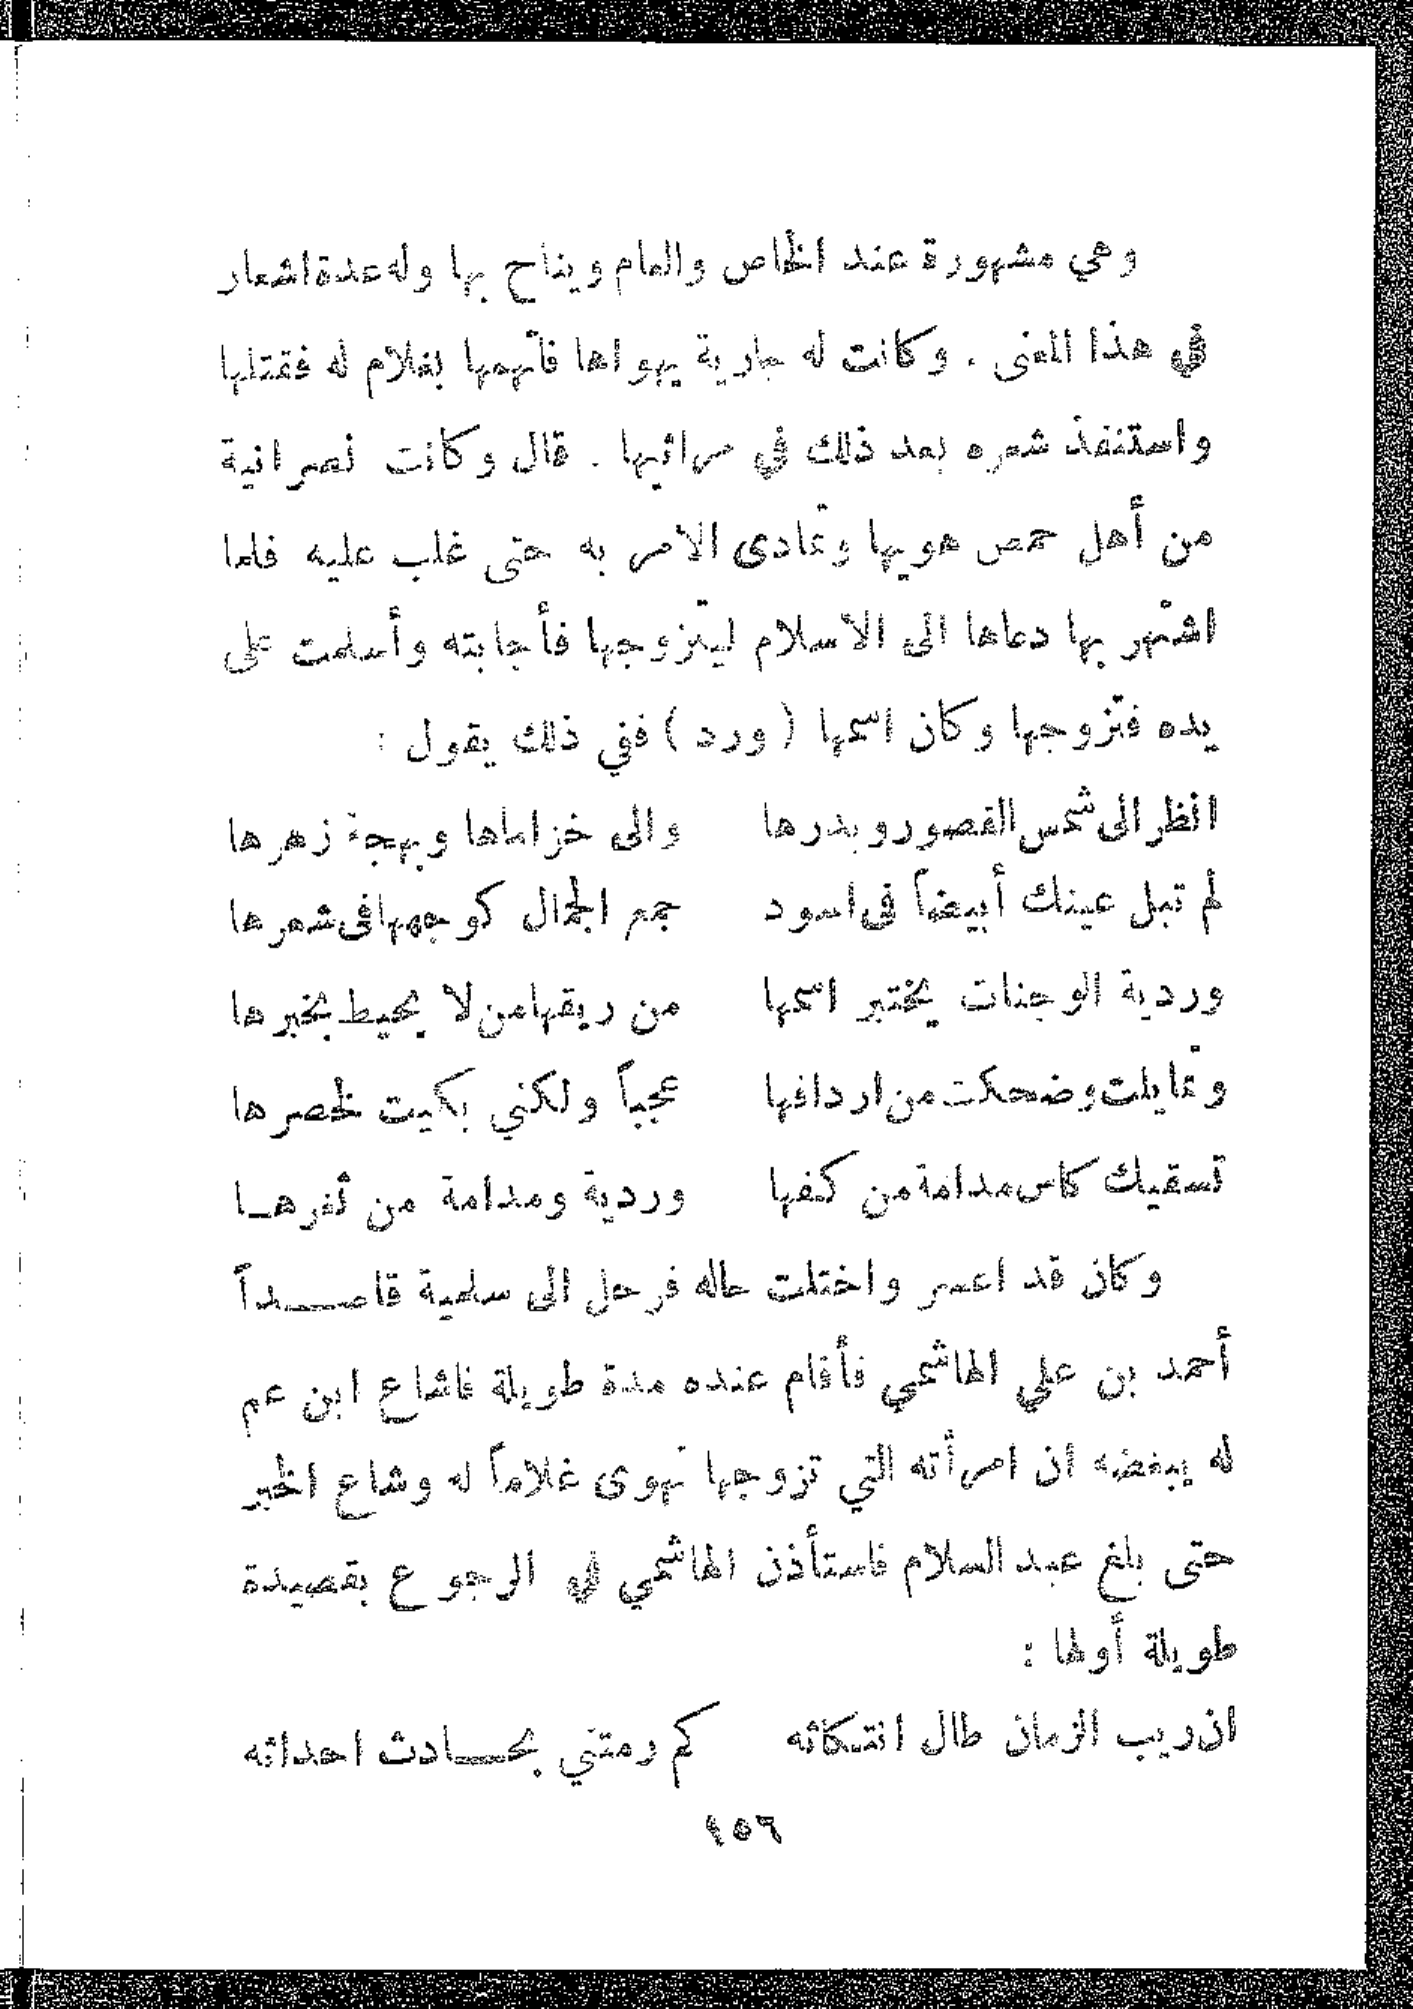 وهي مشهورة عند الخاص والعام ويناح بها وله عدة اشعار
في هذا المعنى . وكانت له جارية يهواها فاتهمها بغلام له فقتلها
واستنفذ شعره بعد ذلك في مراثيها . قال وكانت نصرانية
من أهل حمص هويها وتمادى الامر به حتى غلب عليه فلما
اشتهر بها دعاها الى الاسلام ليتزوجها فأجابته وأسلمت على
يده فتزوجها وكان اسمها ( ورد ) ففي ذلك يقول :
انظر الى شمس القصور وبدرها والى خزاماها وبهجة زهرها
لم تبل عينك أبيضاً في اسود جمع الجمال كوجهها في شعرها
وردية الوجنات يختبر اسمها من ريقها من لا يحيط بخبرها
وتمايلت وضحكت من اردافها عجباً ولكني بكيت لخصرها
تسقيك كاس مدامة من كفها وردية ومدامة من ثغرهـا
وكان قد اعسر واختلت حاله فرحل الى سلمية قاصـــداً
أحمد بن علي الهاشمي فأقام عنده مدة طويلة فاشاع ابن عم
له يبغضه ان امرأته التي تزوجها تهوى غلاماً له وشاع الخبر
حتى بلغ عبد السلام فاستأذن الهاشمي في الرجوع بقصيدة
طويلة أولها :
ان ريب الزمان طال انتكاثه كم رمتني بحـــادث احداثه
١٥٦